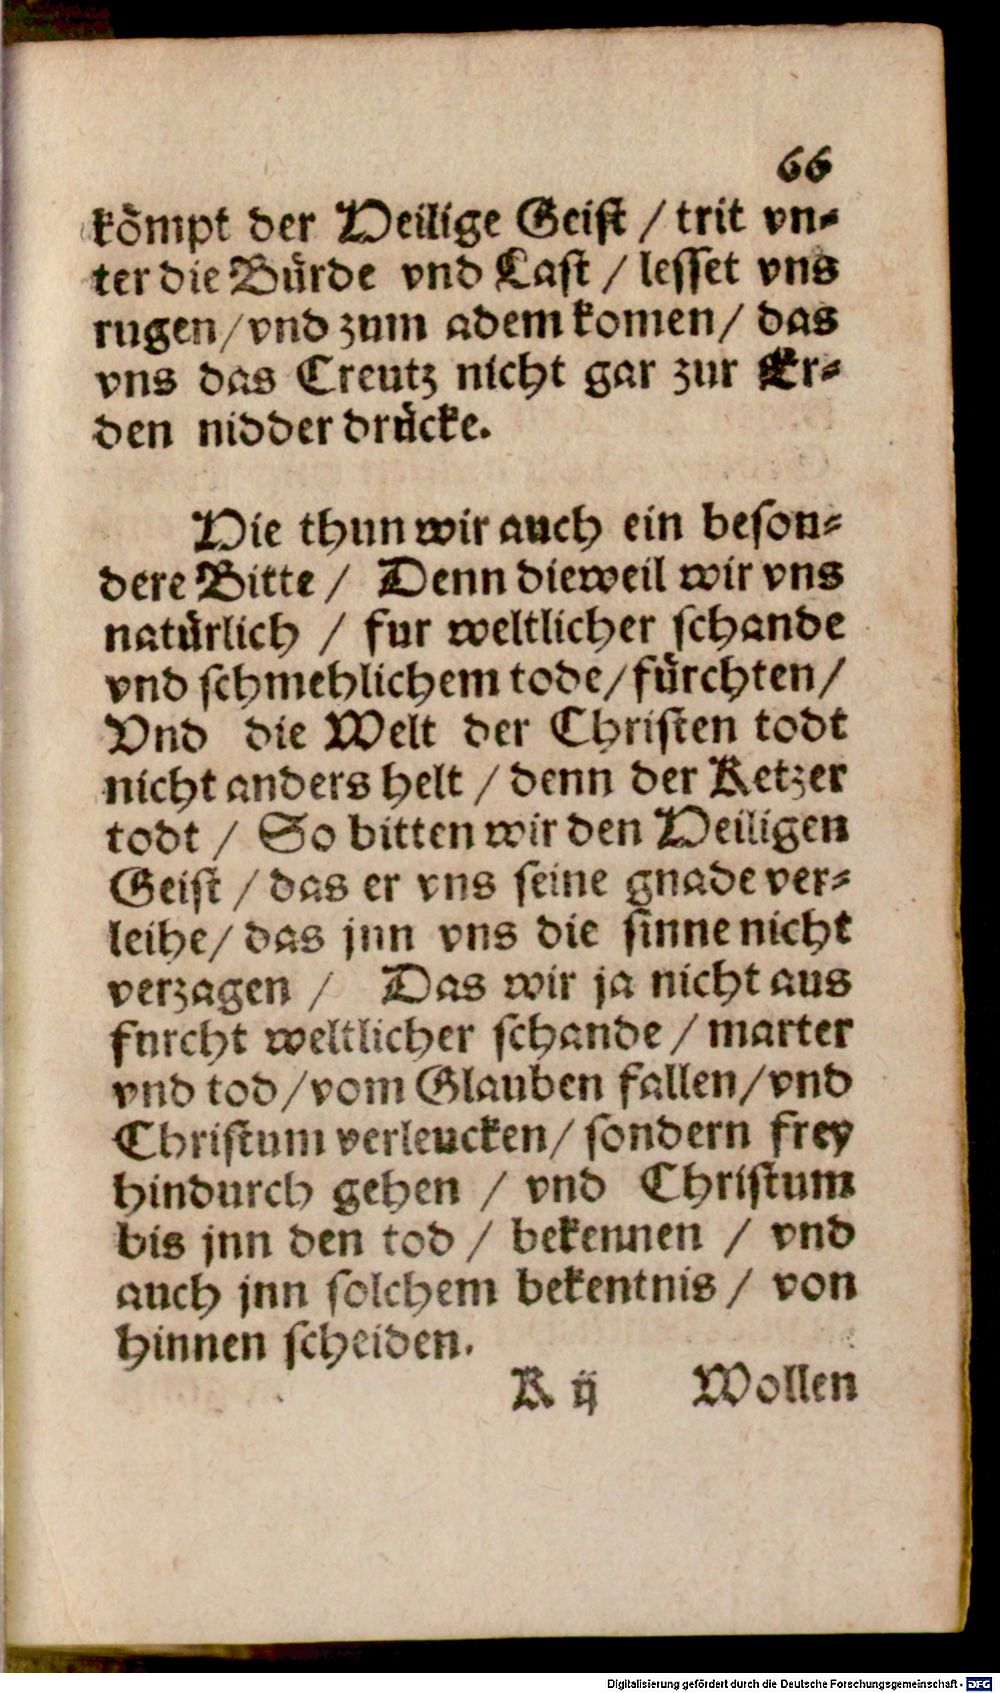 66
kömpt der Heilige Geist / trit vn-
ter die Bürde vnd Last / lesset vns
rugen / vnd zum adem komen / das
vns das Creutz nicht gar zur Er-
den nidder drücke.
Hie thun wir auch ein beson-
dere Bitte / Denn dieweil wir vns
natürlich / fur weltlicher schande
vnd schmehlichem tode / fürchten /
Vnd die Welt der Christen todt
nicht anders helt / denn der Ketzer
todt / So bitten wir den Heiligen
Geist / das er vns seine gnade ver-
leihe / das jnn vns die sinne nicht
verzagen / Das wir ja nicht aus
furcht weltlicher schande / marter
vnd tod / vom Glauben fallen / vnd
Christum verleucken / sondern frey
hindurch gehen / vnd Christum
bis jnn den tod / bekennen / vnd
auch jnn solchem bekentnis / von
hinnen scheiden.
K ij Wollen
Digitalisierung gefördert durch die Deutsche Forschungsgemeinschaft - DFG